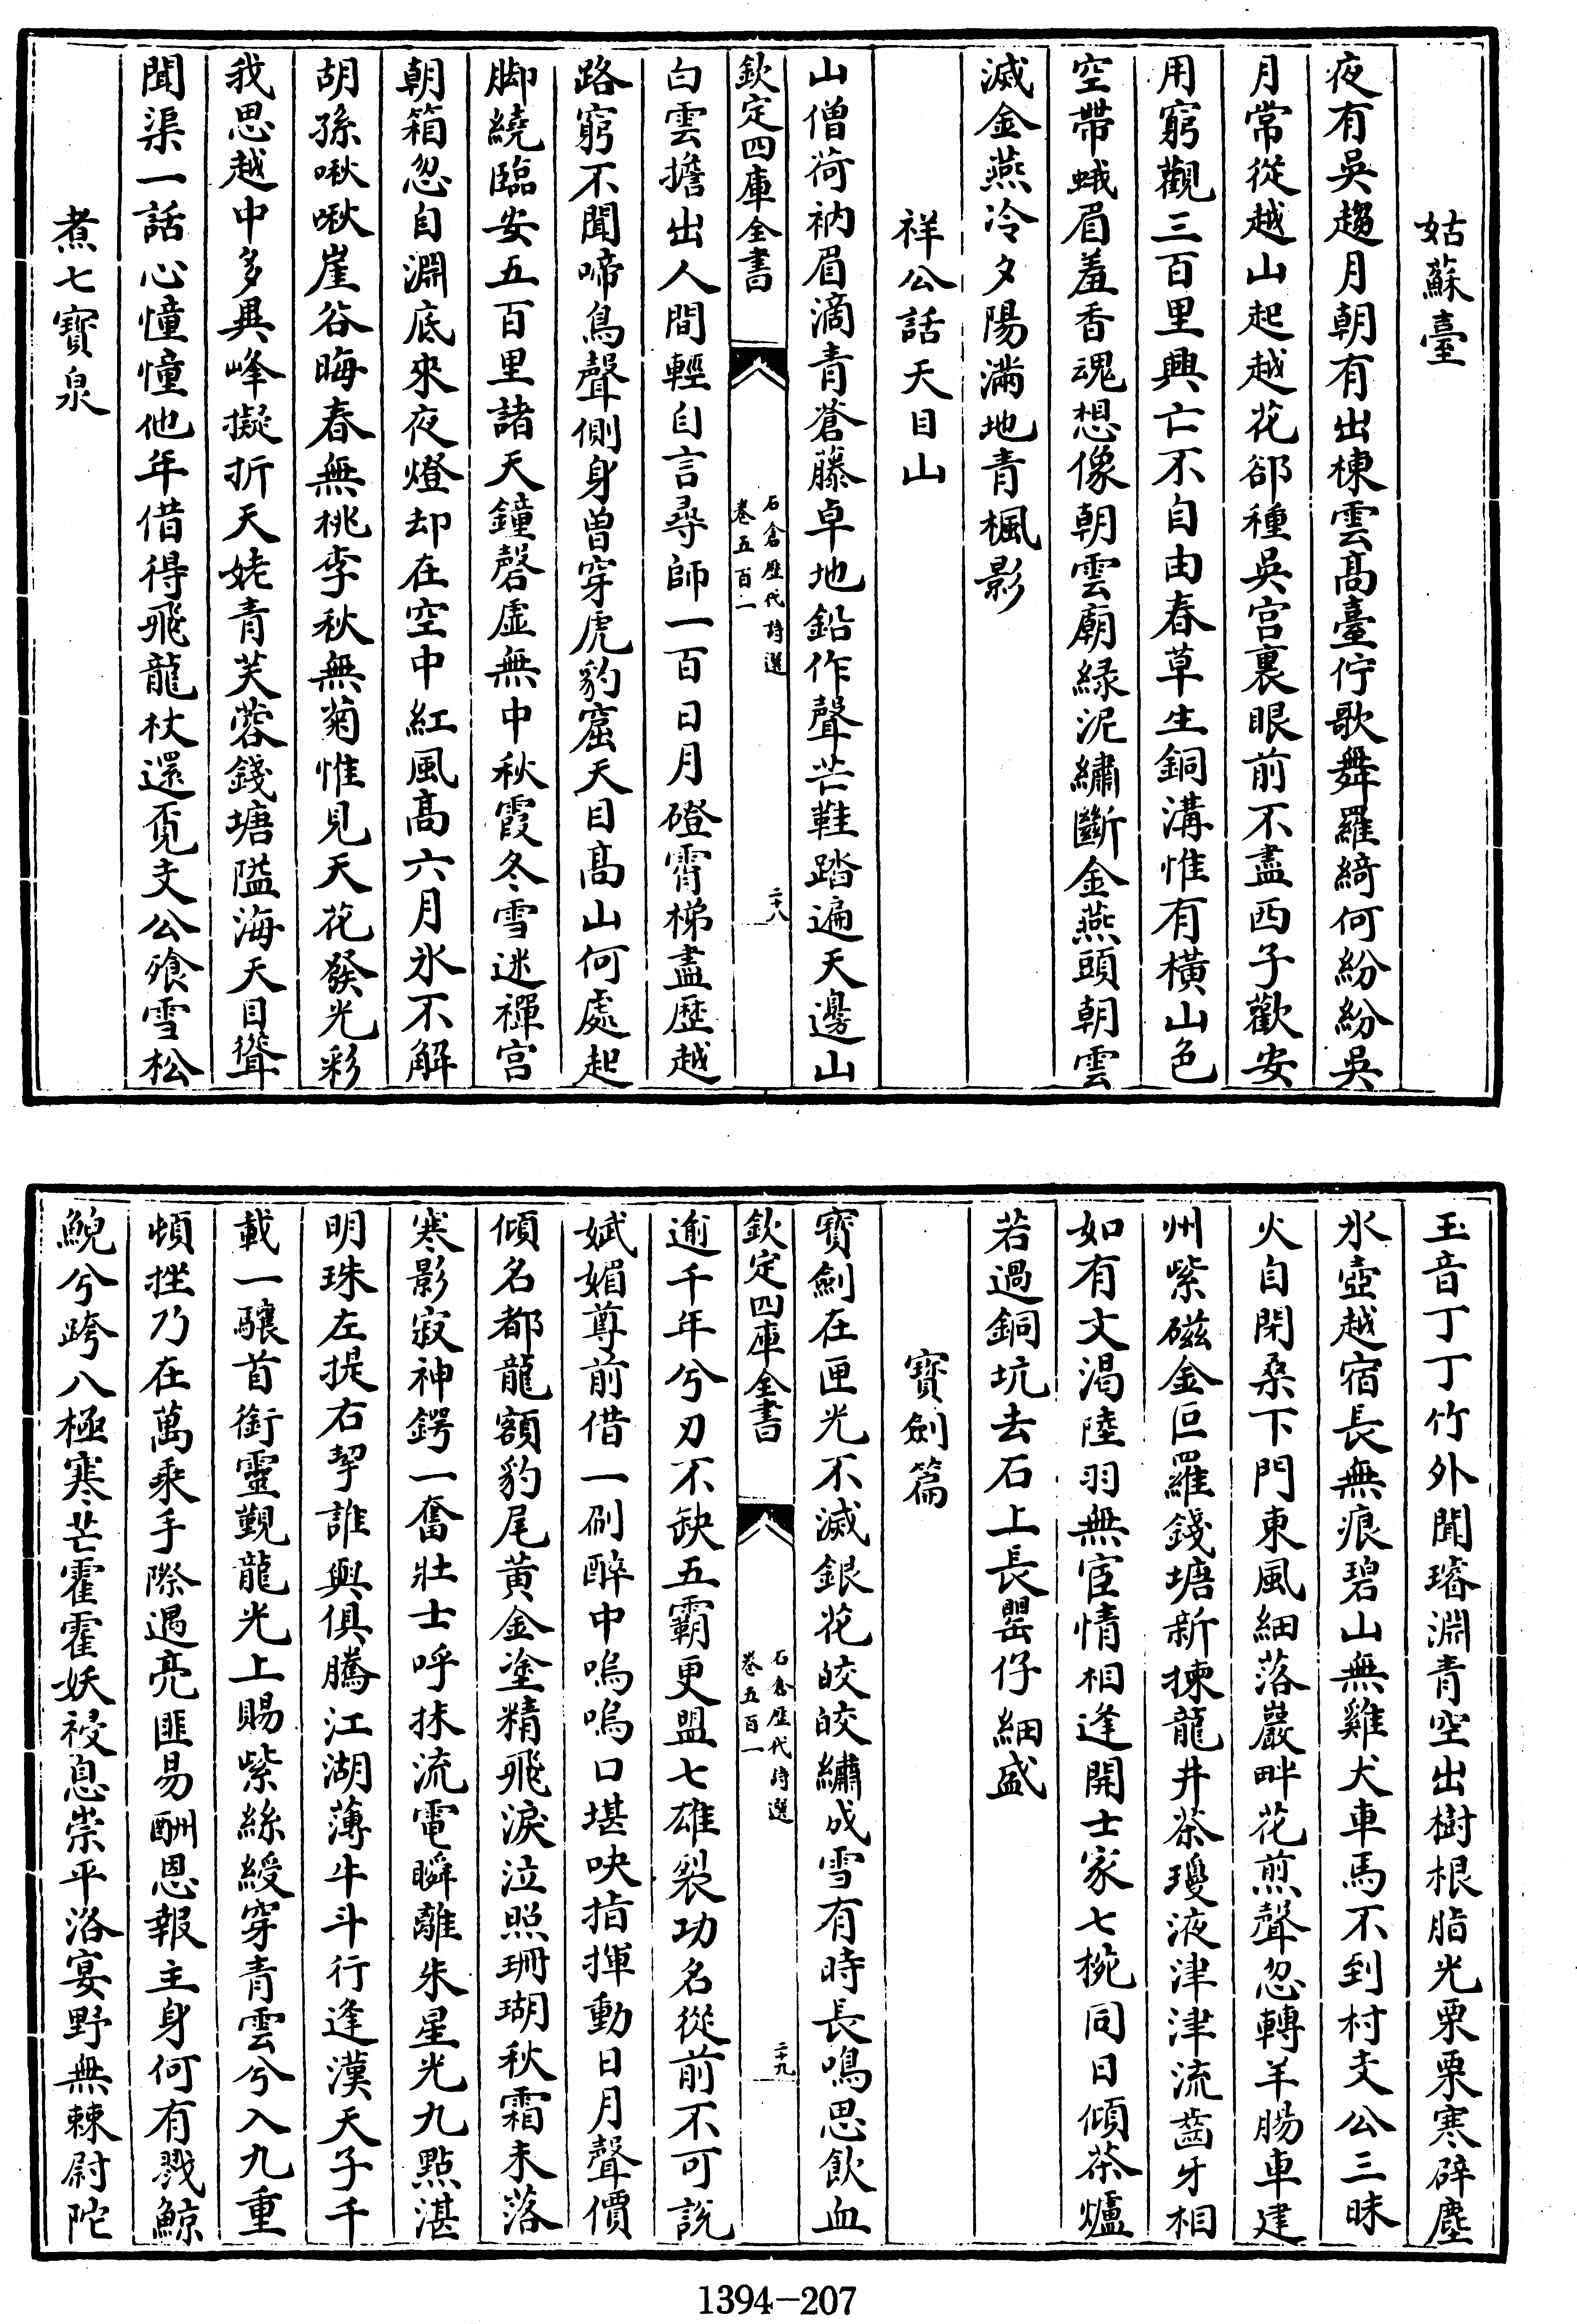 姑蘇臺
夜有吳趨月朝有出棟雲髙臺佇歌舞羅綺何紛紛吳
月常從越山起越花郤種吳宫裏眼前不盡西子歡安
用窮觀三百里興亡不自由春草生銅溝惟有横山色
空帶蛾眉羞香魂想像朝雲廟緑泥繡斷金燕頭朝雲
滅金燕冷夕陽滿地青楓影
祥公話天目山
山僧荷衲眉滴青蒼藤卓地鉛作聲芒鞋踏遍天邊山
欽定四庫全書
石倉歷代詩選
卷五百一
二十八
白雲擔出人間輕自言尋師一百日月磴霄梯盡歴越
路窮不聞啼鳥聲側身曽穿虎豹窟天目髙山何處起
脚繞臨安五百里諸天鐘磬虚無中秋霞冬雪迷禪宫
朝箱忽自淵底來夜燈却在空中紅風髙六月氷不解
胡孫啾啾崖谷晦春無桃李秋無菊惟見天花發光彩
我思越中多異峰擬折天姥青芙蓉錢塘隘海天目聳
聞渠一話心憧憧他年借得飛龍杖還覔支公飱雪松
煮七寳泉
玉音丁丁竹外聞璿淵青空出樹根脂光栗栗寒辟塵
氷壺越宿長無痕碧山無雞犬車馬不到村支公三昧
火自閉桑下門東風細落巖畔花煎聲忽轉羊腸車建
州紫磁金叵羅錢塘新揀龍井茶瓊液津津流齒牙相
如有文渴陸羽無宦情相逢開士家七椀同日傾茶爐
若過銅坑去石上長罌仔細盛
寳劍篇
寳劍在匣光不滅銀花皎皎繡成雪有時長鳴思飲血
欽定四庫全書
石倉歷代詩選
卷五百一
二十九
逾千年兮刃不缺五霸更盟七雄裂功名從前不可說
娬媚尊前借一刷醉中嗚嗚口堪吷指揮動日月聲價
傾名都龍額豹尾黄金塗精飛淚泣照珊瑚秋霜未落
寒影寂神鍔一奮壯士呼抹流電瞬離朱星光九點湛
明珠左提右挈誰與俱騰江湖薄牛斗行逢漢天子千
載一驤首銜靈覲龍光上賜紫絲綬穿青雲兮入九重
頓挫乃在萬乘手際遇亮匪易酬恩報主身何有戮鯨
鯢兮跨八極寒芒霍霍妖祲息崇平洛宴野無棘尉陀
1394-207